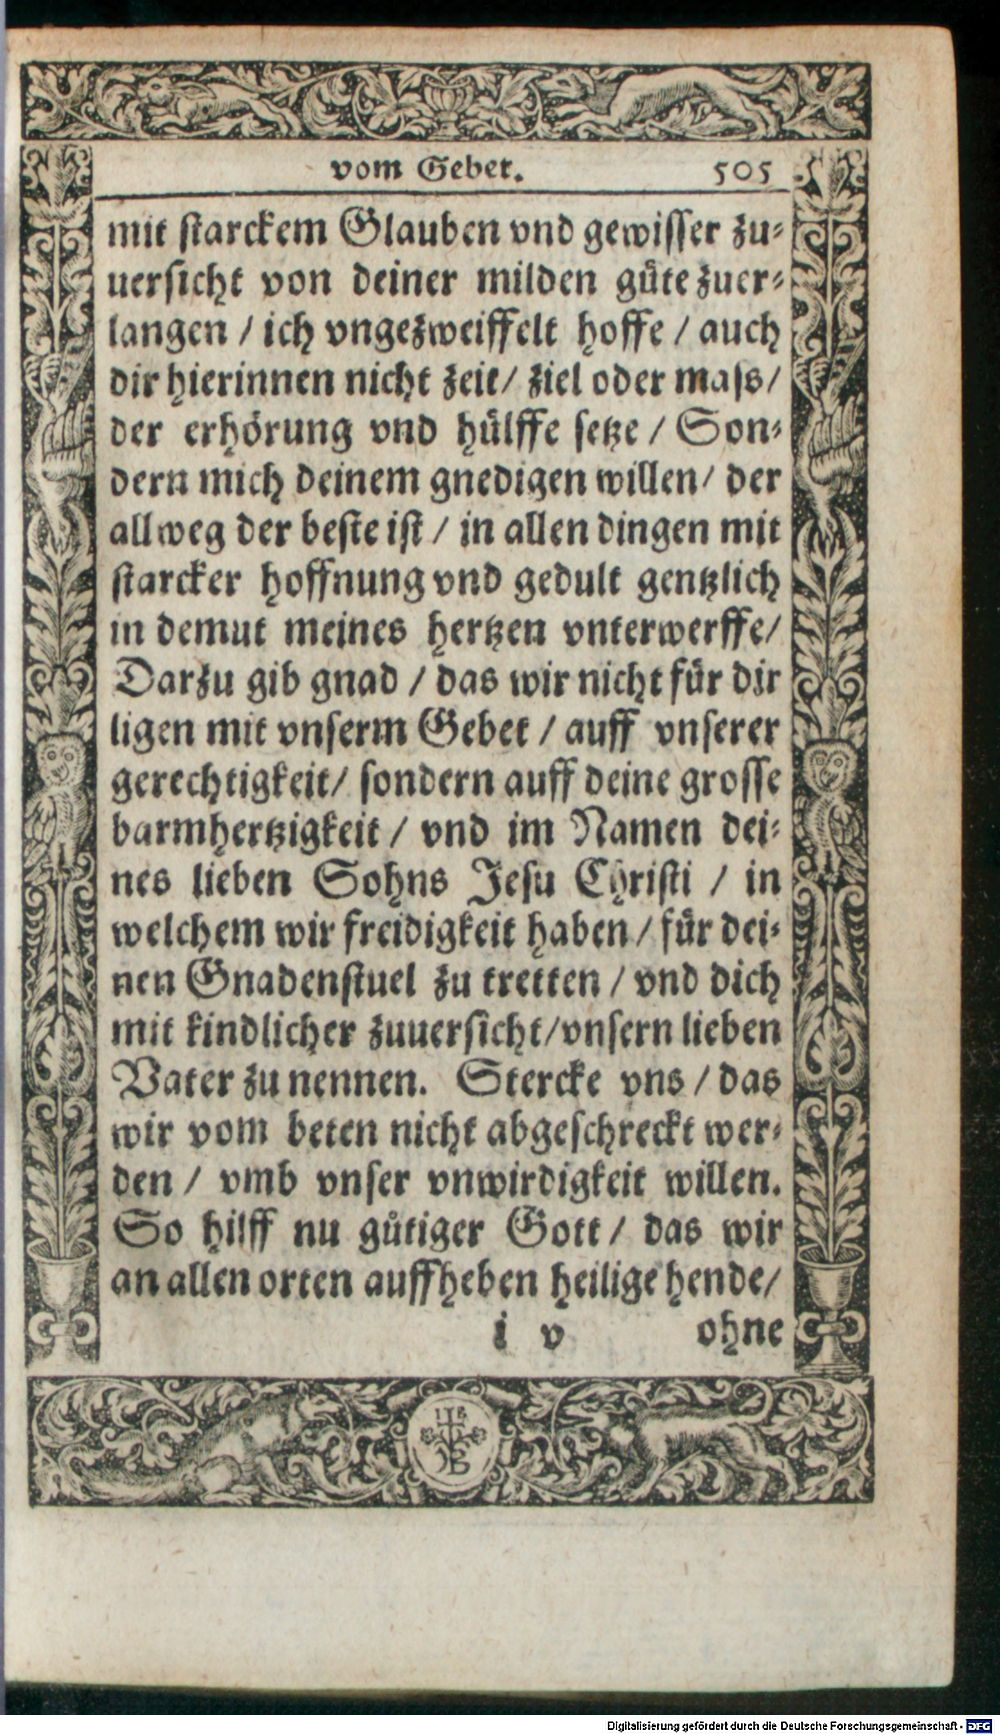 vom Gebet. 505
mit starckem Glauben vnd gewisser zu-
uersicht von deiner milden güte zuer-
langen / ich vngezweiffelt hoffe / auch
dir hierinnen nicht zeit / ziel oder mass /
der erhörung vnd hülffe setze / Son-
dern mich deinem gnedigen willen / der
allweg der beste ist / in allen dingen mit
starcker hoffnung vnd gedult gentzlich
in demut meines hertzen vnterwerffe /
Darzu gib gnad / das wir nicht für dir
ligen mit vnserm Gebet / auff vnserer
gerechtigkeit / sondern auff deine grosse
barmhertzigkeit / vnd im Namen dei-
nes lieben Sohns Jesu Christi / in
welchem wir freidigkeit haben / für dei-
nen Gnadenstuel zu tretten / vnd dich
mit kindlicher zuuersicht / vnsern lieben
Vater zu nennen. Stercke vns / das
wir vom beten nicht abgeschreckt wer-
den / vmb vnser vnwirdigkeit willen.
So hilff nu gütiger Gott / das wir
an allen orten auffheben heilige hende /
i v ohne
Digitalisierung gefördert durch die Deutsche Forschungsgemeinschaft - DFG